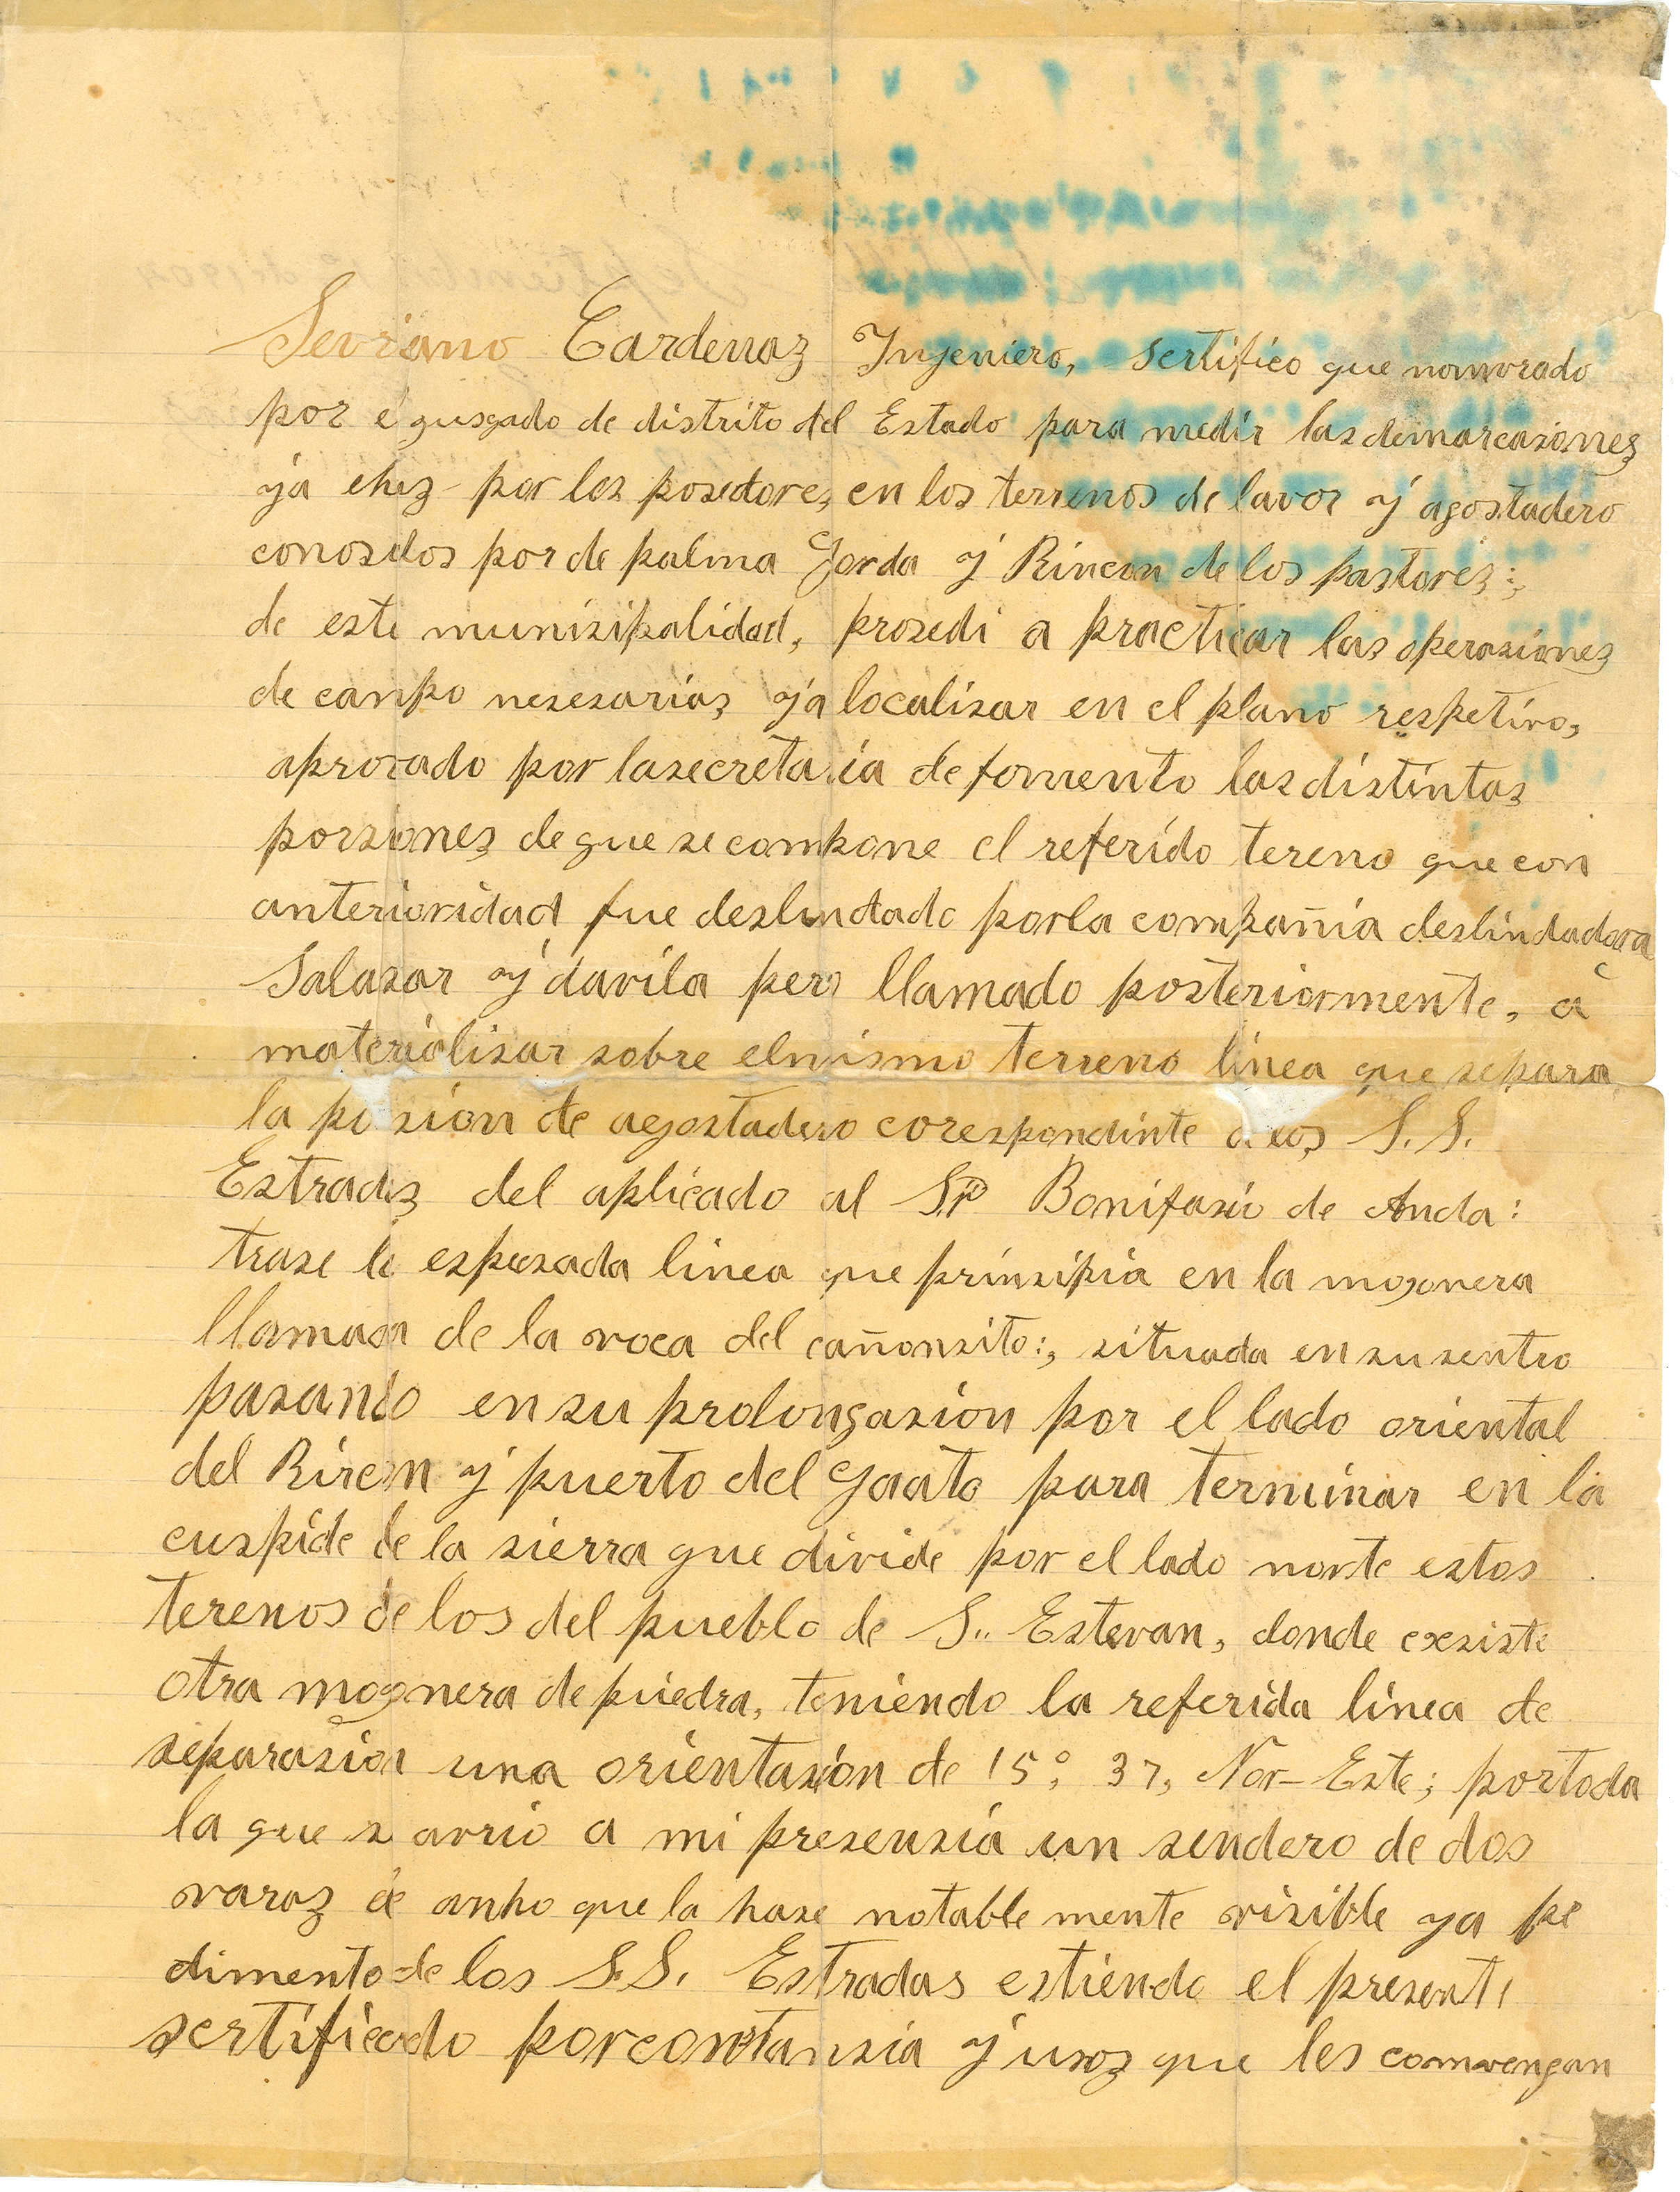 Sevriano Cardenaz Ingeniero, sertifico que nomvrado
por é jusgado de distrito del Estado para medir las demarcasionez
ya ehez por los posedorez en los terrenos de lavor y agostadero
conosidos por de palma Gorda y Rincon de los pastorez:,
de este munisipalidad, prosedi a practicar las operasionez
de canpo nesesariaz ya localisar en el plano respetivo,
aprovado por la secretaria de fomento las distintas
porsionez de que se compone el referido tereno que con
anterioridad fue deslindado por la compañia deslindadora
Salasar y davila pero llamado posteriormente, á
materialisar sobre el mismo terreno linea que separa
la po sion de agostadero corespondinte a los S. S.
Estradaz del aplicado al Sr Bonifasio de Anda:
trase la espesada linea que prinsipia en la mojonera
llamada de la voca del cañonsito:, situada en su sentro
pasando en su prolongasion por el lado oriental
del Rincon y puerto del gaato para terminar en la
cuspide de la sierra que divide por el lado norte estos
terenos de los del pueblo de S.. Estevan, donde exsiste
otra mojonera de piedra, teniendo la referida linea de
separasion una orientasion de 15°, 37, Nor-Este; por toda
la que s avrio a mi presensia un sendero de dos
varaz de anho que la hase notable mente visible ya pe
dimento de los S.S. Estradas estiendo el presente
sertificado por constansia y usoz que les comvengan